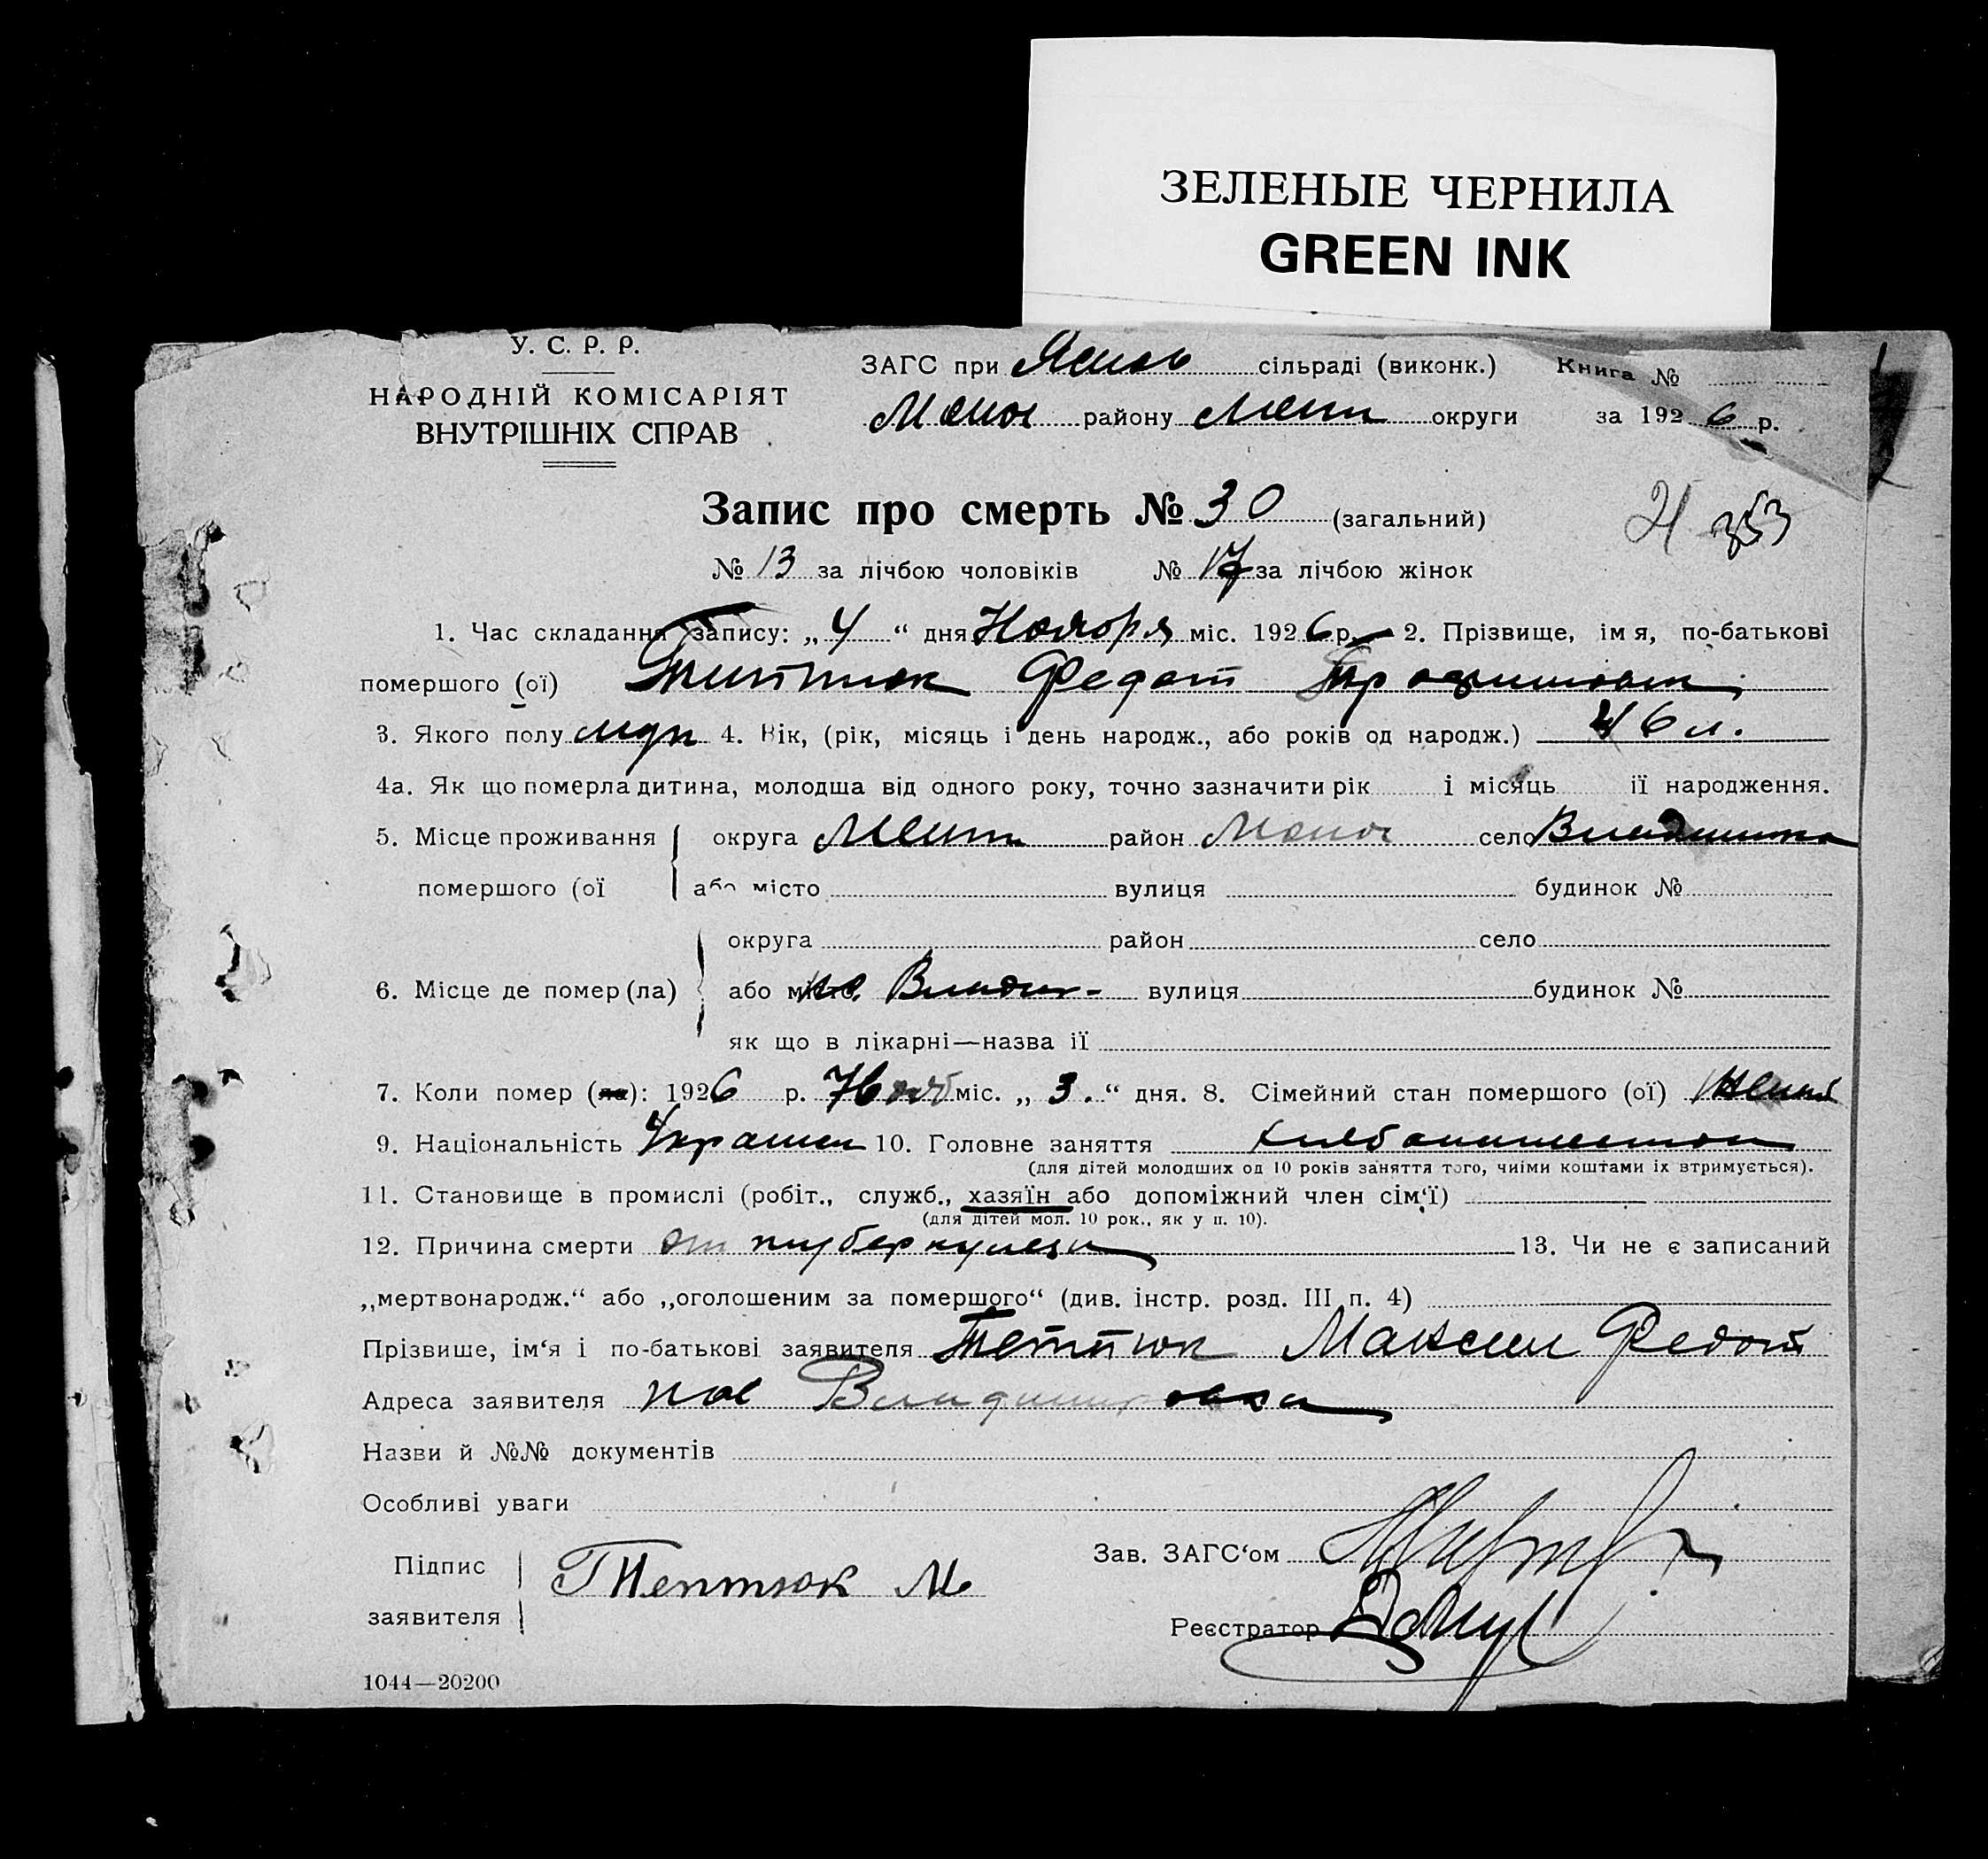 ЗЕЛЕНЫЕ ЧЕРНИЛА
GREEN INK
У. С. Р. Р.
НАРОДНІЙ КОМІСАРІЯТ
ВНУТРІШНІХ СПРАВ
ЗАГС при сільраді (виконк.) Книга №
району округи за 1926 р.
Запис про смерть № 30 (загальний)
353
№ 13 за лічбою чоловіків № 17 за лічбою жінок
1. Час складання запису: „ 4 “ дня Ноября міс. 1926 р. 2. Прізвище, імя, по-батькові
помершого (ої) Федот
3. Якого полу муж 4. Вік, (рік, місяць і день народж., або років од народж.) 46 л.
4а. Як що померла дитина, молодша від одного року, точно зазначити рік і місяць її народження.
5. Місце проживання округа район село
помершого (ої або місто вулиця будинок №
округа район село
6. Місце де помер (ла) або вулиця будинок №
як що в лікарні—назва її
7. Коли помер (ла): 1926 р. Нояб міс. „ 3. “ дня. 8. Сімейний стан помершого (ої)
9. Національність 10. Головне заняття
(для дітей молодших од 10 років заняття того, чиїми коштами їх втримується).
11. Становище в промислі (робіт., служб., хазяїн або допоміжний член сім‘ї)
(для дітей мол. 10 рок., як у п. 10).
12. Причина смерти от туберкулеза 13. Чи не є записаний
„мертвонародж.“ або „оголошеним за померщого“ (див. інстр. розд. III п. 4)
Прізвише, ім‘я і по-батькові заявителя Тептюк Максим Федот
Адреса заявителя пос Владимировка
Назви й №№ документів
Особливі уваги
Підпис
заявителя
Тептюк М
Зав. ЗАГС‘ом
Реєстратор
1044—20200